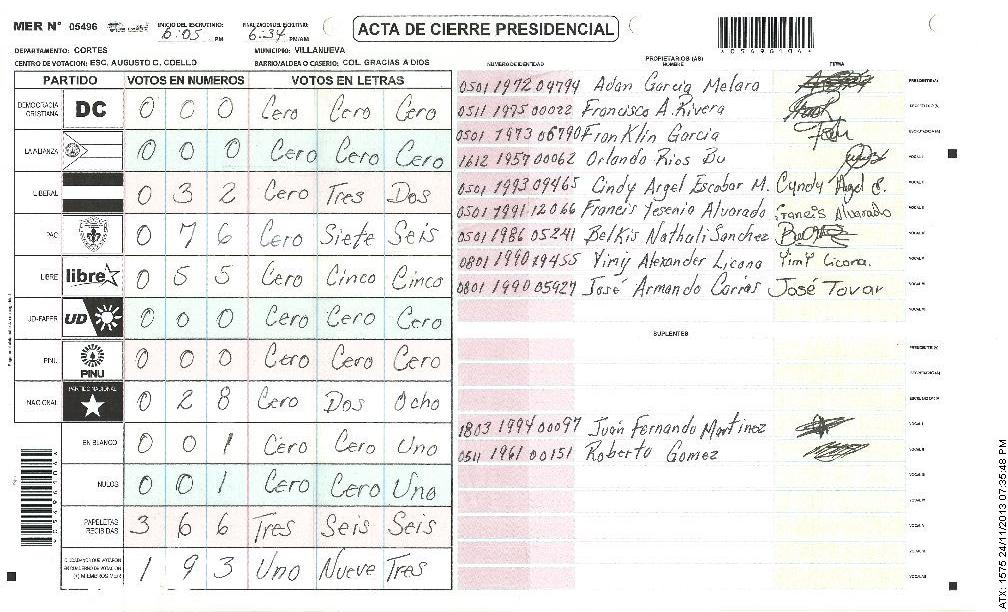 MER N° 05496 INICIO DEL ESCRUTINIO: 6:05 PM FINALIZACION DEL ESCRUTINIO: 6:34 PM/AM
ACTA DE CIERRE PRESIDENCIAL
DEPARTAMENTO: CORTES MUNICIPIO: VILLANUEVA
CENTRO DE VOTACION: ESC. AUGUSTO C. COELLO BARRIO/ALDEA O CASERIO: COL. GRACIAS A DIOS
PARTIDO VOTOS EN NUMEROS VOTOS EN LETRAS
DEMOCRACIA CRISTIANA DC 0 0 0 Cero Cero Cero
LA ALIANZA 0 0 0 Cero Cero Cero
LIBERAL 0 3 2 Cero Tres Dos
PAC 0 7 6 Cero Siete Seis
LIBRE libre 0 5 5 Cero Cinco Cinco
UD-FAPER UD 0 0 0 Cero Cero Cero
PINU PINU 0 0 0 Cero Cero Cero
NACIONAL PARTIDO NACIONAL 0 2 8 Cero Dos Ocho
EN BLANCO 0 0 1 Cero Cero Uno
NULOS 0 0 1 Cero Cero Uno
PAPELETAS RECIBIDAS 3 6 6 Tres Seis Seis
CIUDADANOS QUE VOTARON EN CUADERNO DE VOTACION (+) MIEMBROS MER 1 9 3 Uno Nueve Tres
PROPIETARIOS (AS)
NUMERO DE IDENTIDAD NOMBRE FIRMA
0501 1972 04794 Adan Garcia Melara PRESIDENTE(A)
0511 1975 00022 Francisco A. Rivera SECRETARIO(A)
0501 1973 06790 Franklin Garcia ESCRUTADOR(A)
1612 1957 00062 Orlando Rios Bu VOCAL I
0501 1993 09465 Cindy Argel Escobar M. Cyndy Argel E. VOCAL II
0501 1991 12066 Francis Yesenia Alvarado Francis Alvarado VOCAL III
0501 1986 05241 Belkis Nathali Sanchez VOCAL IV
0801 1990 19455 Yimy Alexander Licona Yimy Licona. VOCAL V
0801 1990 05927 José Armando Carrás José Tovar VOCAL VI
SUPLENTES
PRESIDENTE(A)
SECRETARIO(A)
ESCRUTADOR(A)
1803 1994 00097 Juán Fernando Martinez VOCAL I
0511 1961 00151 Roberto Gomez VOCAL II
ATX: 1575 24/11/2013 07:35:48 PM